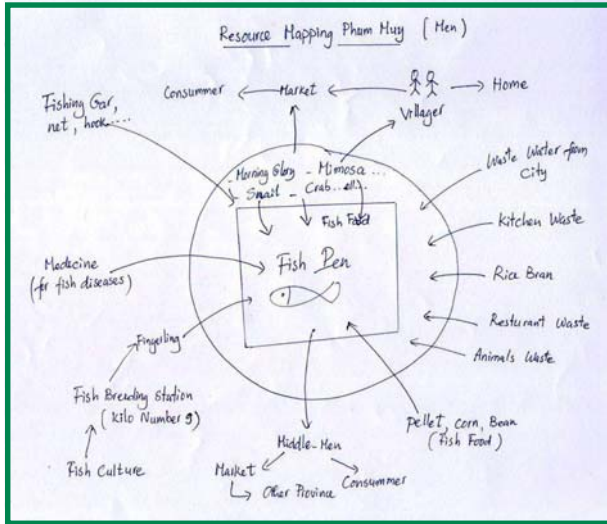 Resource Mapping Phum Muy (Men)
Consummer
Market
Home
Villager
Fishing Gar,
net, hook.....
- Morning Glory - Mimosa ...
- Snail - Crab...etc..
Fish Food
Waste Water from
City
Kitchen Waste
Rice Bran
Resturant Waste
Animals Waste
Medicine
(for fish diseases)
Fish Pen
Fingerling
Fish Breeding Station
(Kilo Number 9)
Fish Culture
Pellet, corn, Bean
(Fish Food)
Middle-Men
Market
Consummer
Other Province